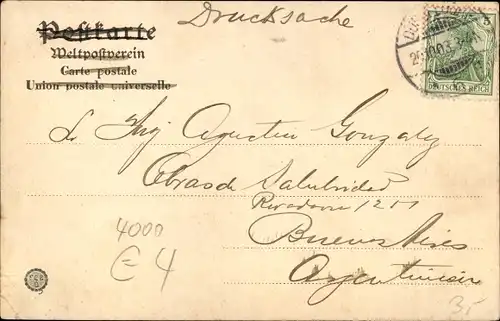 Drucksache
Postkarte
Weltpostverein
Carte postale
Union postale universelle
5
DEUTSCHES REICH
S. Ing Agustin Gonzalez
Obras de Salubridad
Rivadavia 1255
Buenos Aires
Argentinien
4000
€ 4
35